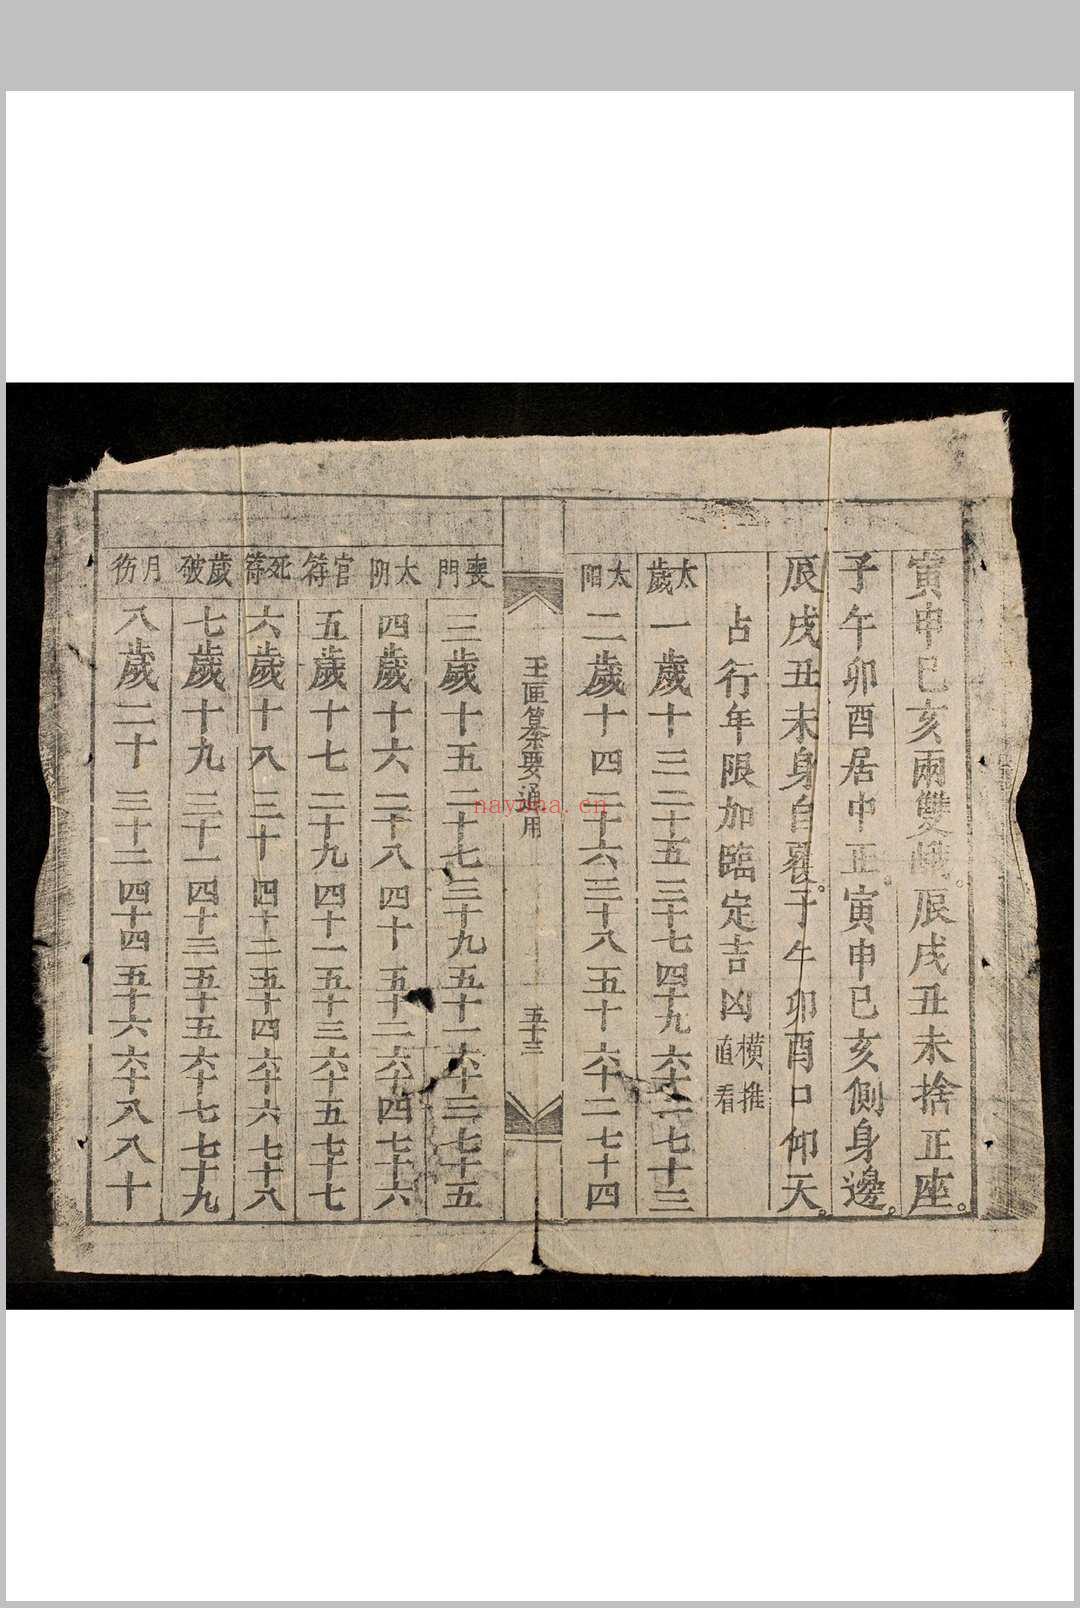 寅申巳亥兩雙
辰戌丑未捨正座。
子午卯酉居中正。寅申巳亥側身邊。
辰戌丑未身自覆。子午卯酉口仰天。
占行年限加臨定吉凶
橫推
直看
太歲
一歲十三二十五三十七四十九六十一七十三
太陽
二歲十四二十六三十八五十六十二七十四
玉匣纂要通用
五十三
喪門
三歲十五二十七三十九五十一六十三七十五
太阴
四歲十六二十八四十五十二六十四七十六
官符
五歲十七二十九四十一五十三六十五七十七
死符
六歲十八三十四十二五十四六十六七十八
歲破
七歲十九三十一四十三五十五六十七七十九
月伤
八歲二十三十二四十四五十六六十八八十
nayona.cn